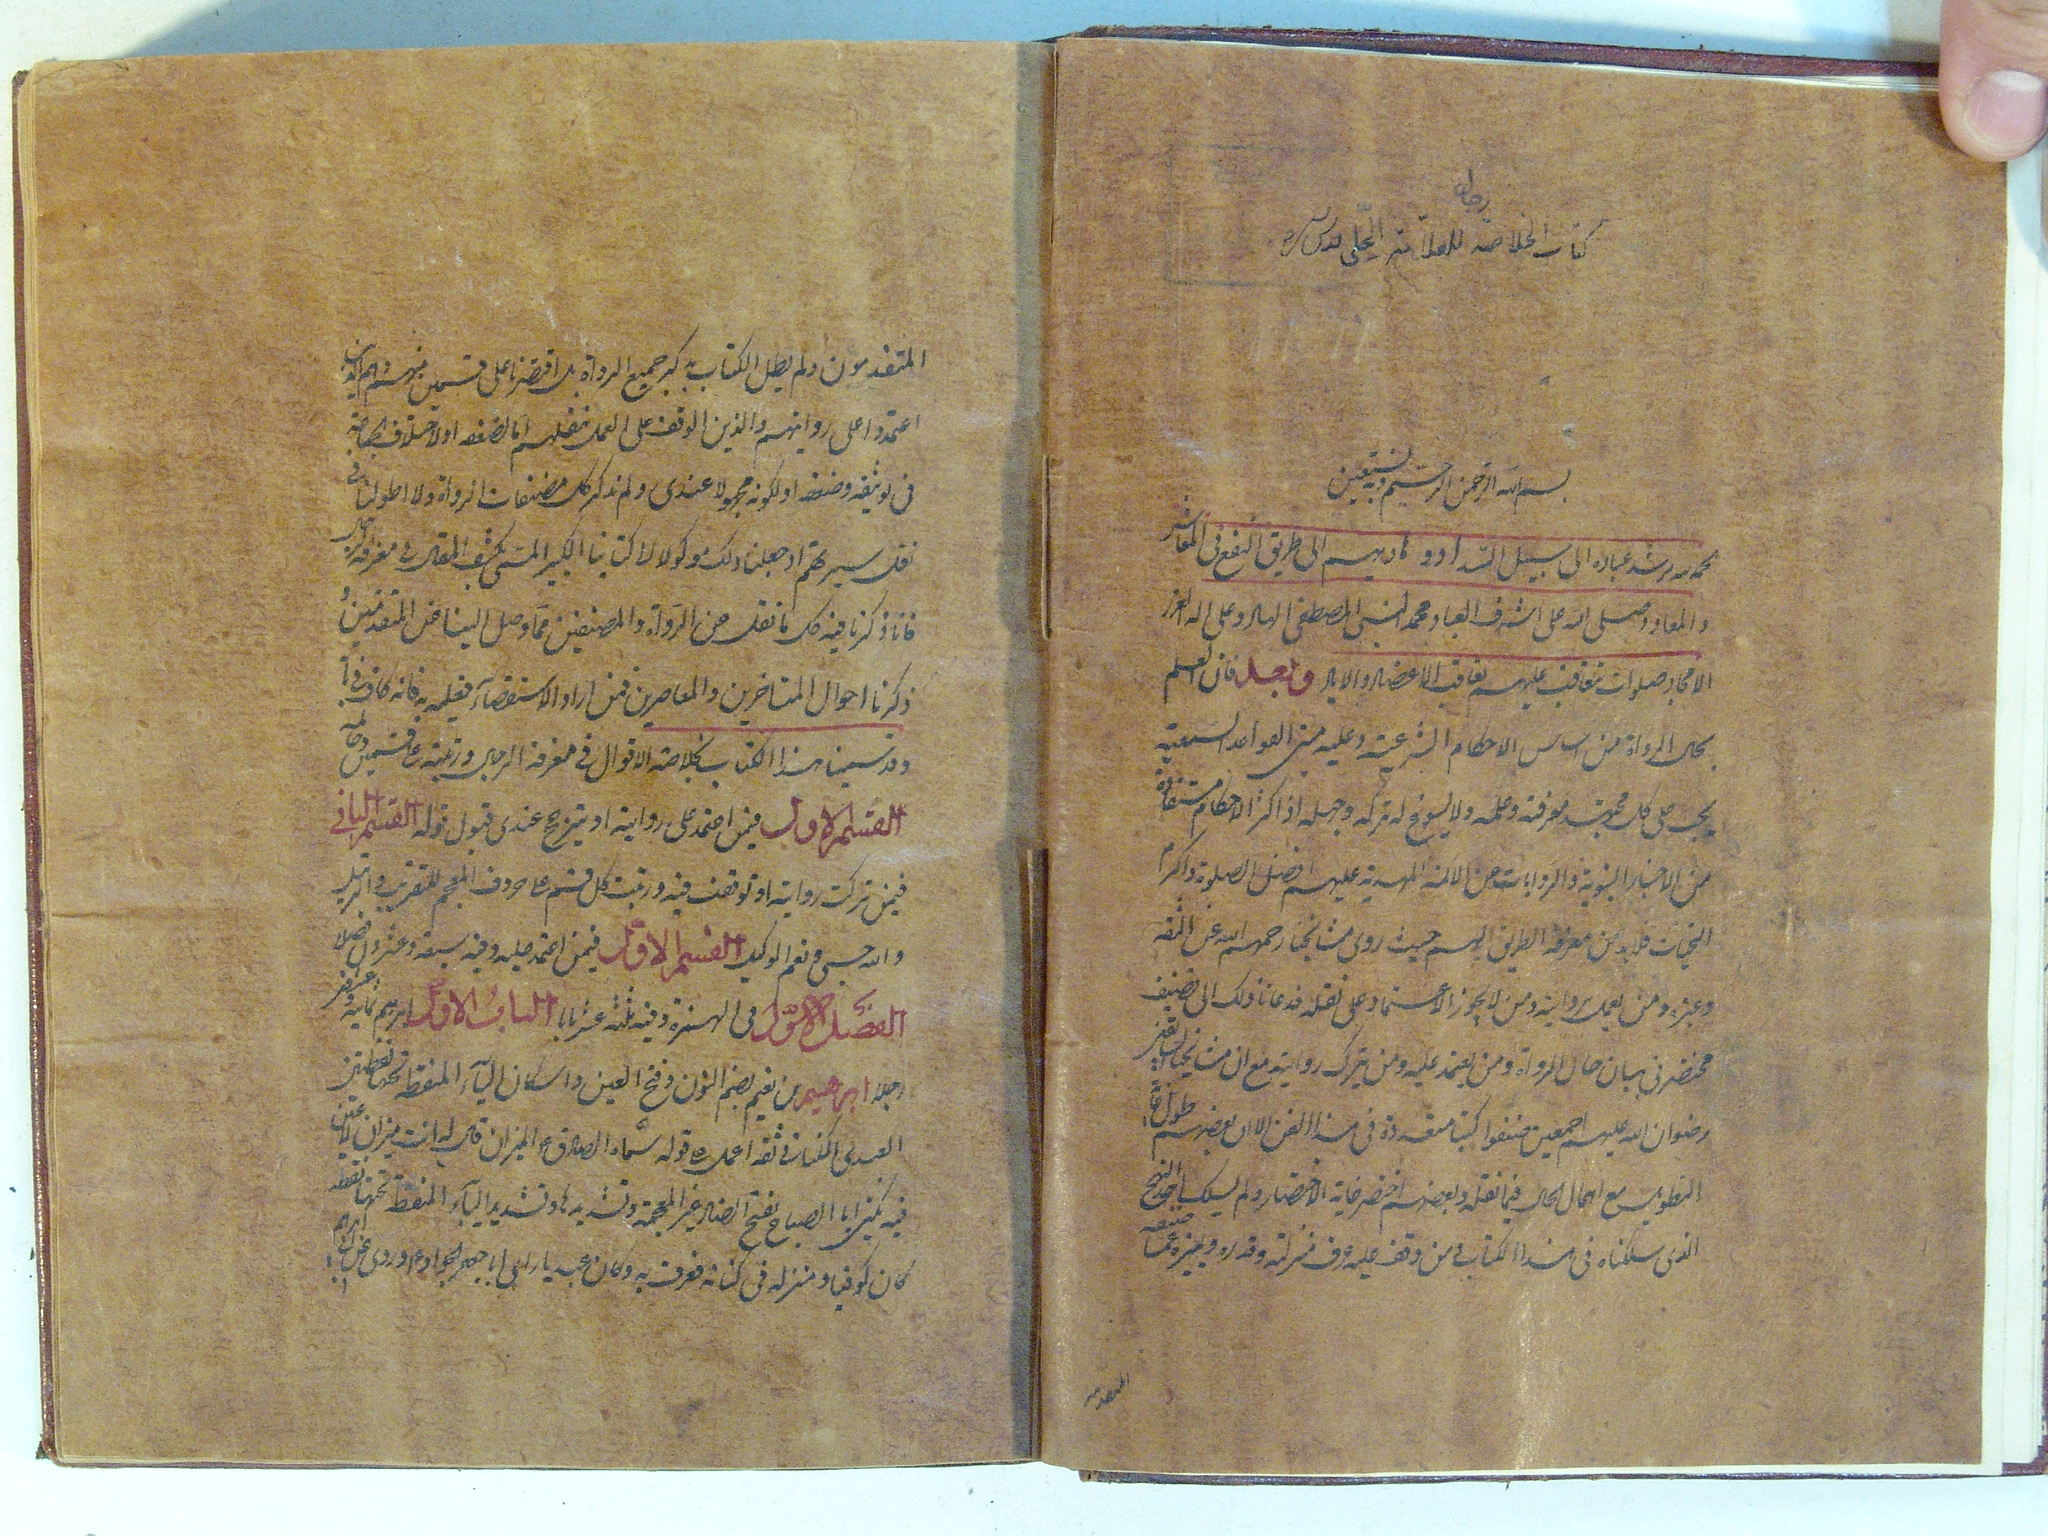 رجال
كتاب الخلاصه للعلامة الحلى قدس سره
بسم الله الرحمن الرحيم وبه نستعين
الحمد لله مرشد عباده الى سبيل السداد و هاديهم الى طريق النفع فى المعاش
والمعاد وصلى الله على اشرف العباد محمد النبى المصطفى الهاد وعلى اله الغرر
الامجاد صلوات تتعاقب عليهم تعاقب الاعصار والاباد وبعد فان العلم
بحال الرواة من اساس الاحكام الشرعية وعليه مبنى القواعد السمعية
يجب على كل مجتهد معرفته وعلمه ولا يسوغ له تركه وجهله اذ اكثر الاحكام مستفادة
من الاخبار النبوية والروايات عن الائمة المهدية عليهم افضل الصلوة واكرم
التحيات فلا بد من معرفة الطريق اليهم حيث روى مشايخنا رحمهم الله عن الثقة
وغيره ومن يعمل بروايته ومن لا يجوز الاعتماد على نقله فدعانا ذلك الى تصنيف
مختصر فى بيان حال الرواة ومن يعتمد عليه ومن يترك روايته مع ان مشايخنا السابقين
رضوان الله عليهم اجمعين صنفوا كتبا متعددة فى هذا الفن الا ان بعضهم طول غاية
التطويل مع اجمال الحال فيما نقله وبعضهم اختصر غاية الاختصار ولم يسلك احد النهج
الذى سلكناه فى هذا الكتاب ومن وقف عليه عرف منزلته وقدره وتميزه عما صنفه
المتقدمو
المتقدمون ولم يطل الكتاب بذكر جميع الرواة بل اقتصرنا على قسمين منهم وهم الذين
اعتمدوا على روايتهم والذين اتوقف على العمل بنقلهم اما لضعفه او لاختلاف الجماعة
فى توثيقه وضعفه او لكونه مجهولا عندى ولم نذكر كل مصنفات الرواة ولا طولنا فى
نقل سيرتهم اذ جعلنا ذلك موكولا الى كتابنا الكبير المسمى بكشف المقال فى معرفة الرجال
فانا ذكرنا فيه كل ما نقل عن الرواة والمصنفين مما وصل الينا عن المتقدمين و
ذكرنا احوال المتاخرين والمعاصرين فمن اراد الاستقصاء فعليه به فانه كاف فى بابه
وقد سمينا هذا الكتاب بخلاصة الاقوال فى معرفة الرجال ورتبته على قسمين وخاتمة
القسم الاول فيمن اعتمد على روايته او يترجح عندى قبول قوله القسم الثانى
فيمن تركت روايته او توقفت فيه ورتبت كل قسم على حروف المعجم للتقريب والتسهيل
والله حسبى ونعم الوكيل القسم الاول فيمن اعتمد عليه وفيه سبعة وعشرون فصلا
الفصل الاول فى الهمزة وفيه ثلثة عشر بابا الباب الاول ابرهيم ثمانية وعشرون
رجلا ابرهيم بن نعيم بضم النون وفتح العين واسكان الياء المنقطة تحتها نقطتين
العبدى الكنانى ثقة اعمل على قوله سماه الصادق ع الميزان قال له انت ميزان لا عين
فيه يكنى ابا الصباح بفتح الصاد غير المعجمة وتشديدها وتشديد الياء المنقطة تحتها نقطة
كان كوفيا ومنزله فى كنانة فعرف به وكان عبديا راى ابا جعفر الجواد ع وروى عن ابى ابرهيم